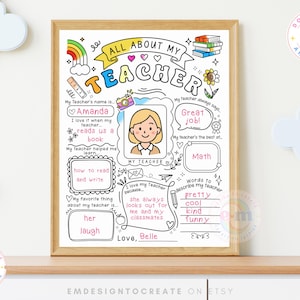 ALL ABOUT MY
TEACHER
My Teacher's name is...
Amanda
I love it when my
teacher...
reads us a
book
My Teacher helped me
learn...
how to read
and write
My favorite thing
about my teacher is...
her
laugh
MY TEACHER
I love my teacher
because...
she always
looks out for
me and my
classmates
Love, Belle
My teacher always says...
Great
job!
My teacher's the best at...
Math
Words to
describe my teacher:
pretty
cool
kind
funny
EMDESIGNTOCREATE ON ETSY